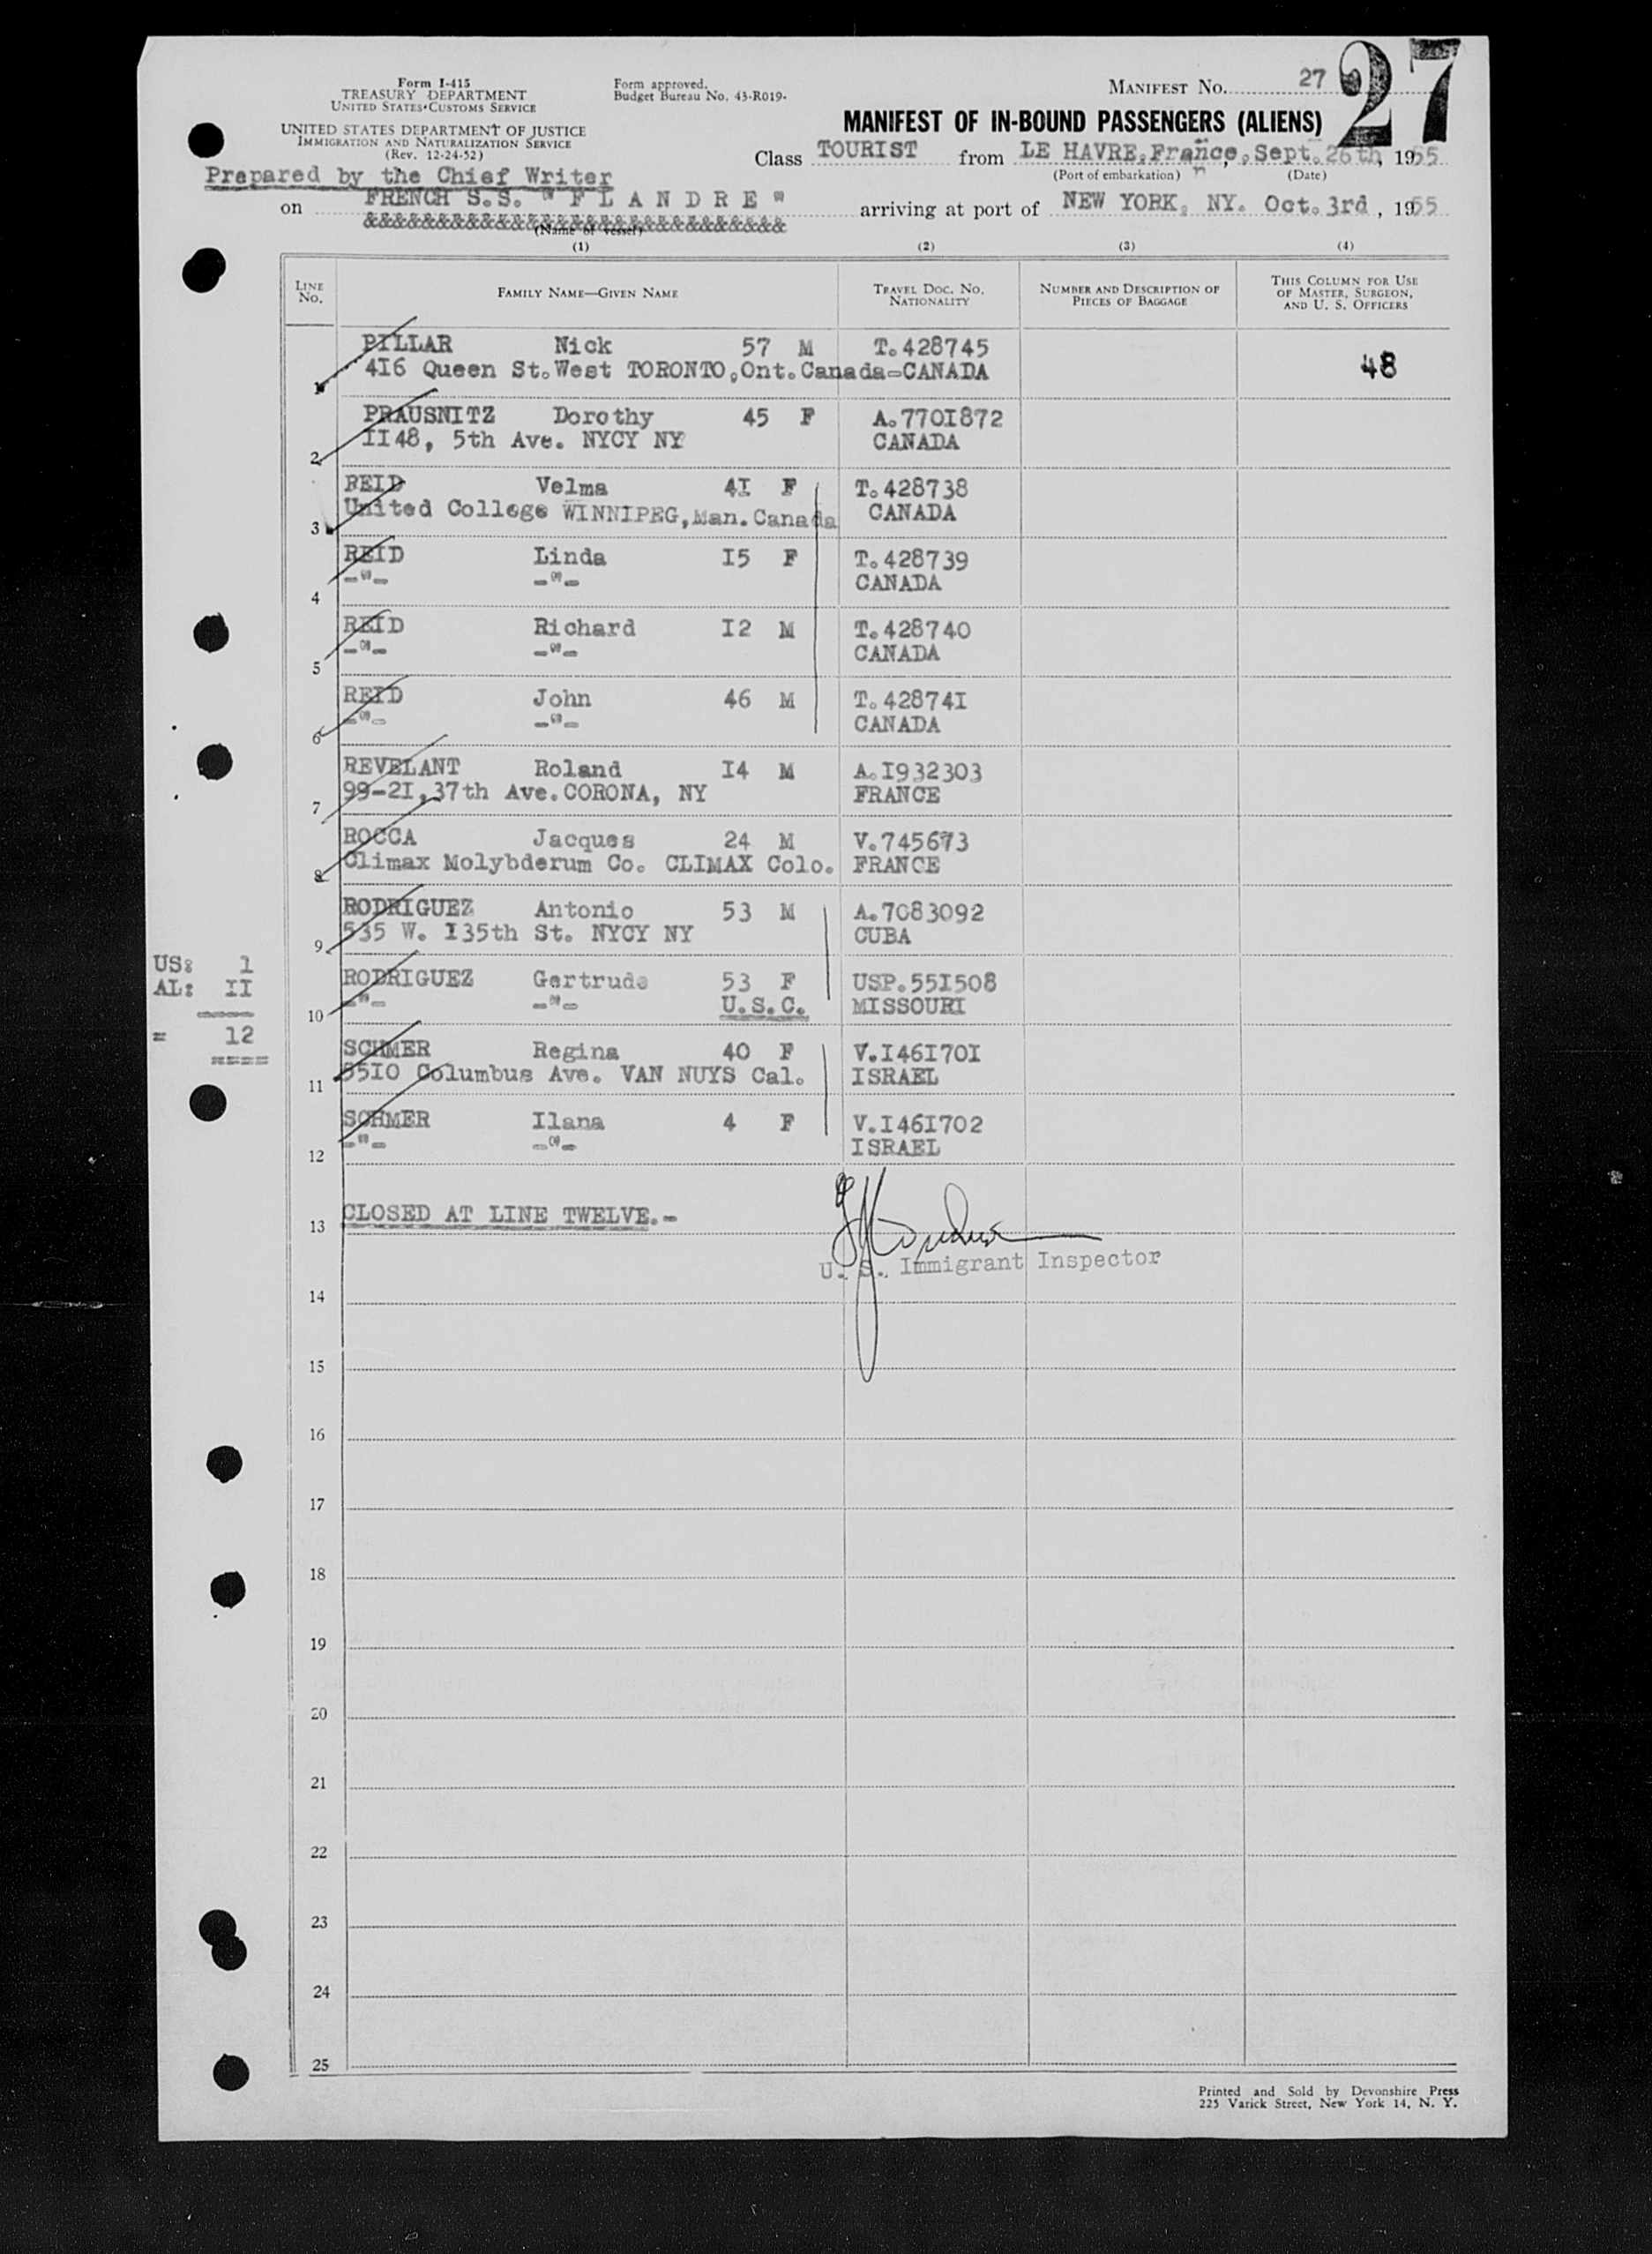 Form I-415
TREASURY DEPARTMENT
UNITED STATES CUSTOMS SERVICE
UNITED STATES DEPARTMENT OF JUSTICE
IMMIGRATION AND NATURALIZATION SERVICE
(Rev. 12-24-52)
Form approved.
Budget Bureau No. 43-R019-
MANIFEST No. 27
27
MANIFEST OF IN-BOUND PASSENGERS (ALIENS)
Class TOURIST from LE HAVRE, France, Sept. 26th, 1955
(Port of embarkation) (Date)
Prepared by the Chief Writer
on FRENCH S.S. " F L A N D R E " arriving at port of NEW YORK, NY. Oct. 3rd, 1955
&&&&&&&&&&&&&&&&&&&&&&&&&&&&&
(Name of vessel)
(1) (2) (3) (4)
LINE No. FAMILY NAME—GIVEN NAME TRAVEL DOC. NO. NATIONALITY NUMBER AND DESCRIPTION OF PIECES OF BAGGAGE THIS COLUMN FOR USE OF MASTER, SURGEON, AND U. S. OFFICERS
PILLAR Nick 57 M T.428745
1 4I6 Queen St.West TORONTO,Ont.Canada-CANADA 48
PRAUSNITZ Dorothy 45 F A.770I872
2 II48, 5th Ave. NYCY NY CANADA
REID Velma 4I F T.428738
3 United College WINNIPEG,Man.Canada CANADA
REID Linda I5 F T.428739
4 -"- -"- CANADA
REID Richard I2 M T.428740
5 -"- -"- CANADA
REID John 46 M T.42874I
6 -"- -"- CANADA
REVELANT Roland I4 M A.I932303
7 99-2I,37th Ave.CORONA, NY FRANCE
ROCCA Jacques 24 M V.745673
8 Climax Molybderum Co. CLIMAX Colo. FRANCE
RODRIGUEZ Antonio 53 M A.7083092
9 535 W. I35th St. NYCY NY CUBA
RODRIGUEZ Gertrude 53 F USP.55I508
10 -"- -"- U.S.C. MISSOURI
SCHMER Regina 40 F V.I46I70I
11 55I0 Columbus Ave. VAN NUYS Cal. ISRAEL
SCHMER Ilana 4 F V.I46I702
12 -"- -"- ISRAEL
US: 1
AL: II
= 12
====
13 CLOSED AT LINE TWELVE.-
U. S. Immigrant Inspector
14
15
16
17
18
19
20
21
22
23
24
25
Printed and Sold by Devonshire Press
225 Varick Street, New York 14, N. Y.